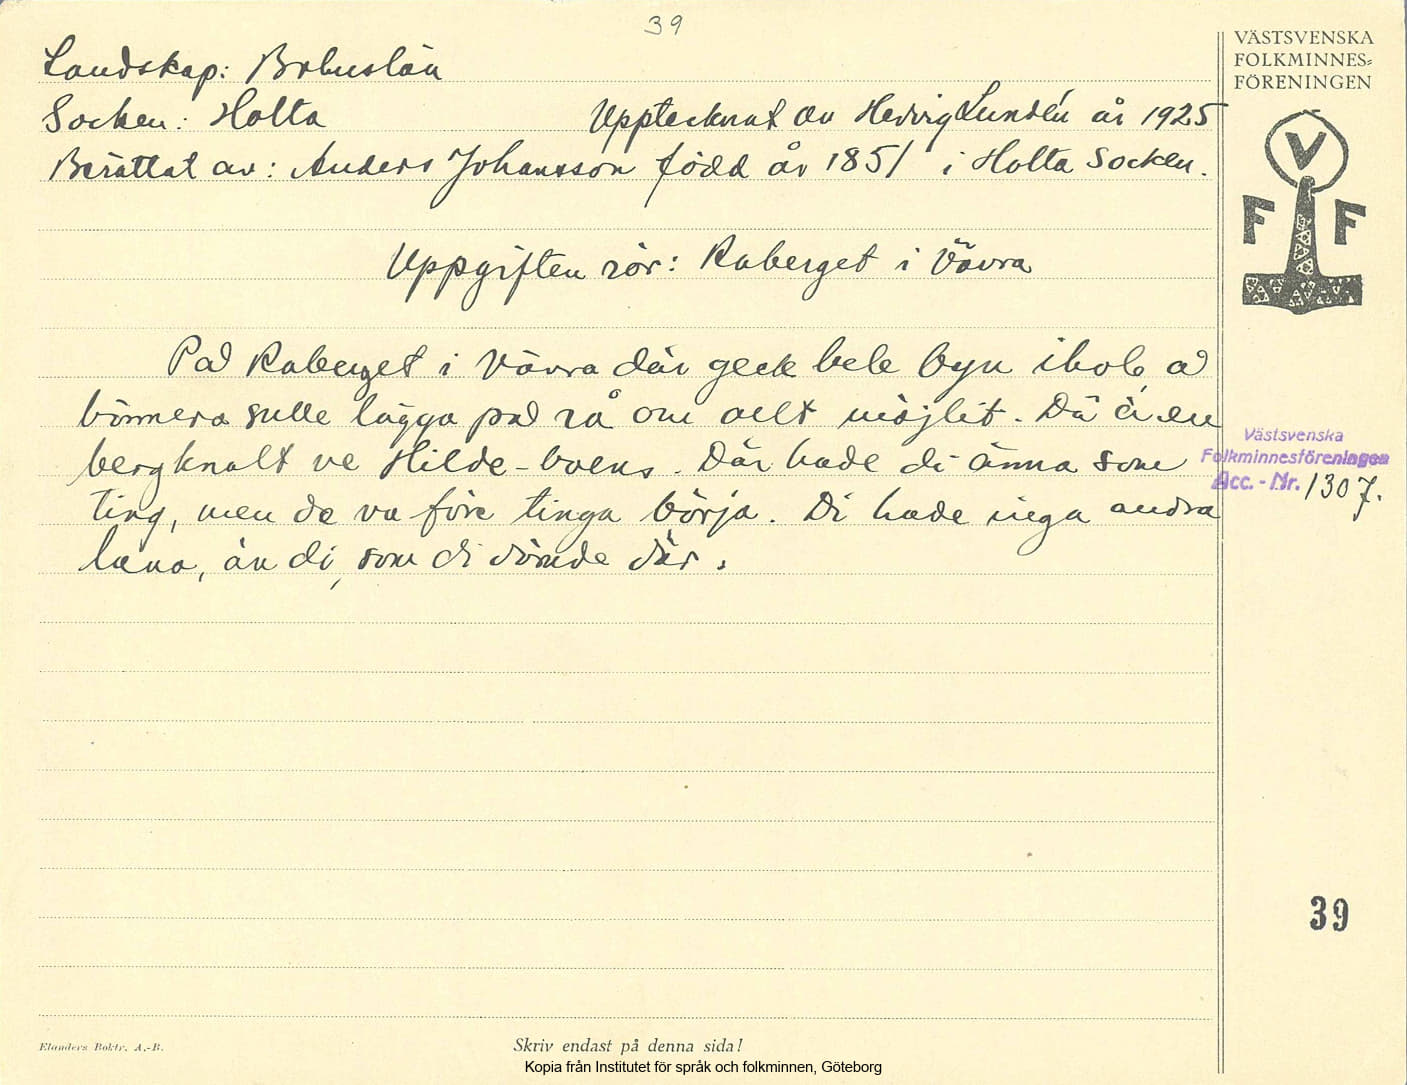 39
Landskap: Bohuslän
Socken: Holta Upptecknat av Hedvig Lundén år 1925
Berättat av: Anders Johansson född år 1851 i Holta Socken.
Uppgiften rör: Raberget i Vävra
På Raberget i Vävra där geck hele byn ihob, å
bönnera sulle lägga på rå om allt möjlit. Dä ä en
bergknalt ve Hilde-boens. Där hade di änna som
ting, men de va före tinga börja. Di hade inga andra
lana, än di, som di dömde där.
VÄSTSVENSKA
FOLKMINNES=
FÖRENINGEN
V
F F
Västsvenska
Folkminnesföreningen
Acc.-Nr. 1307.
39
Elanders Boktr. A.-B.
Skriv endast på denna sida!
Kopia från Institutet för språk och folkminnen, Göteborg